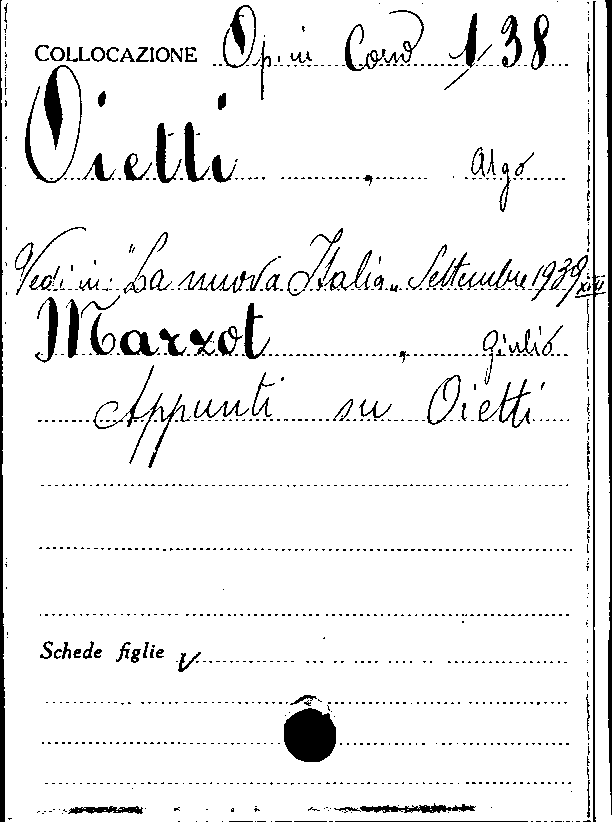 COLLOCAZIONE Op. in Corso 1/38
Oietti , Argo
Vedi in: "La nuova Italia„ Settembre 1939 XVII
Marzot , Giulio
Appunti su Oietti
Schede figlie V